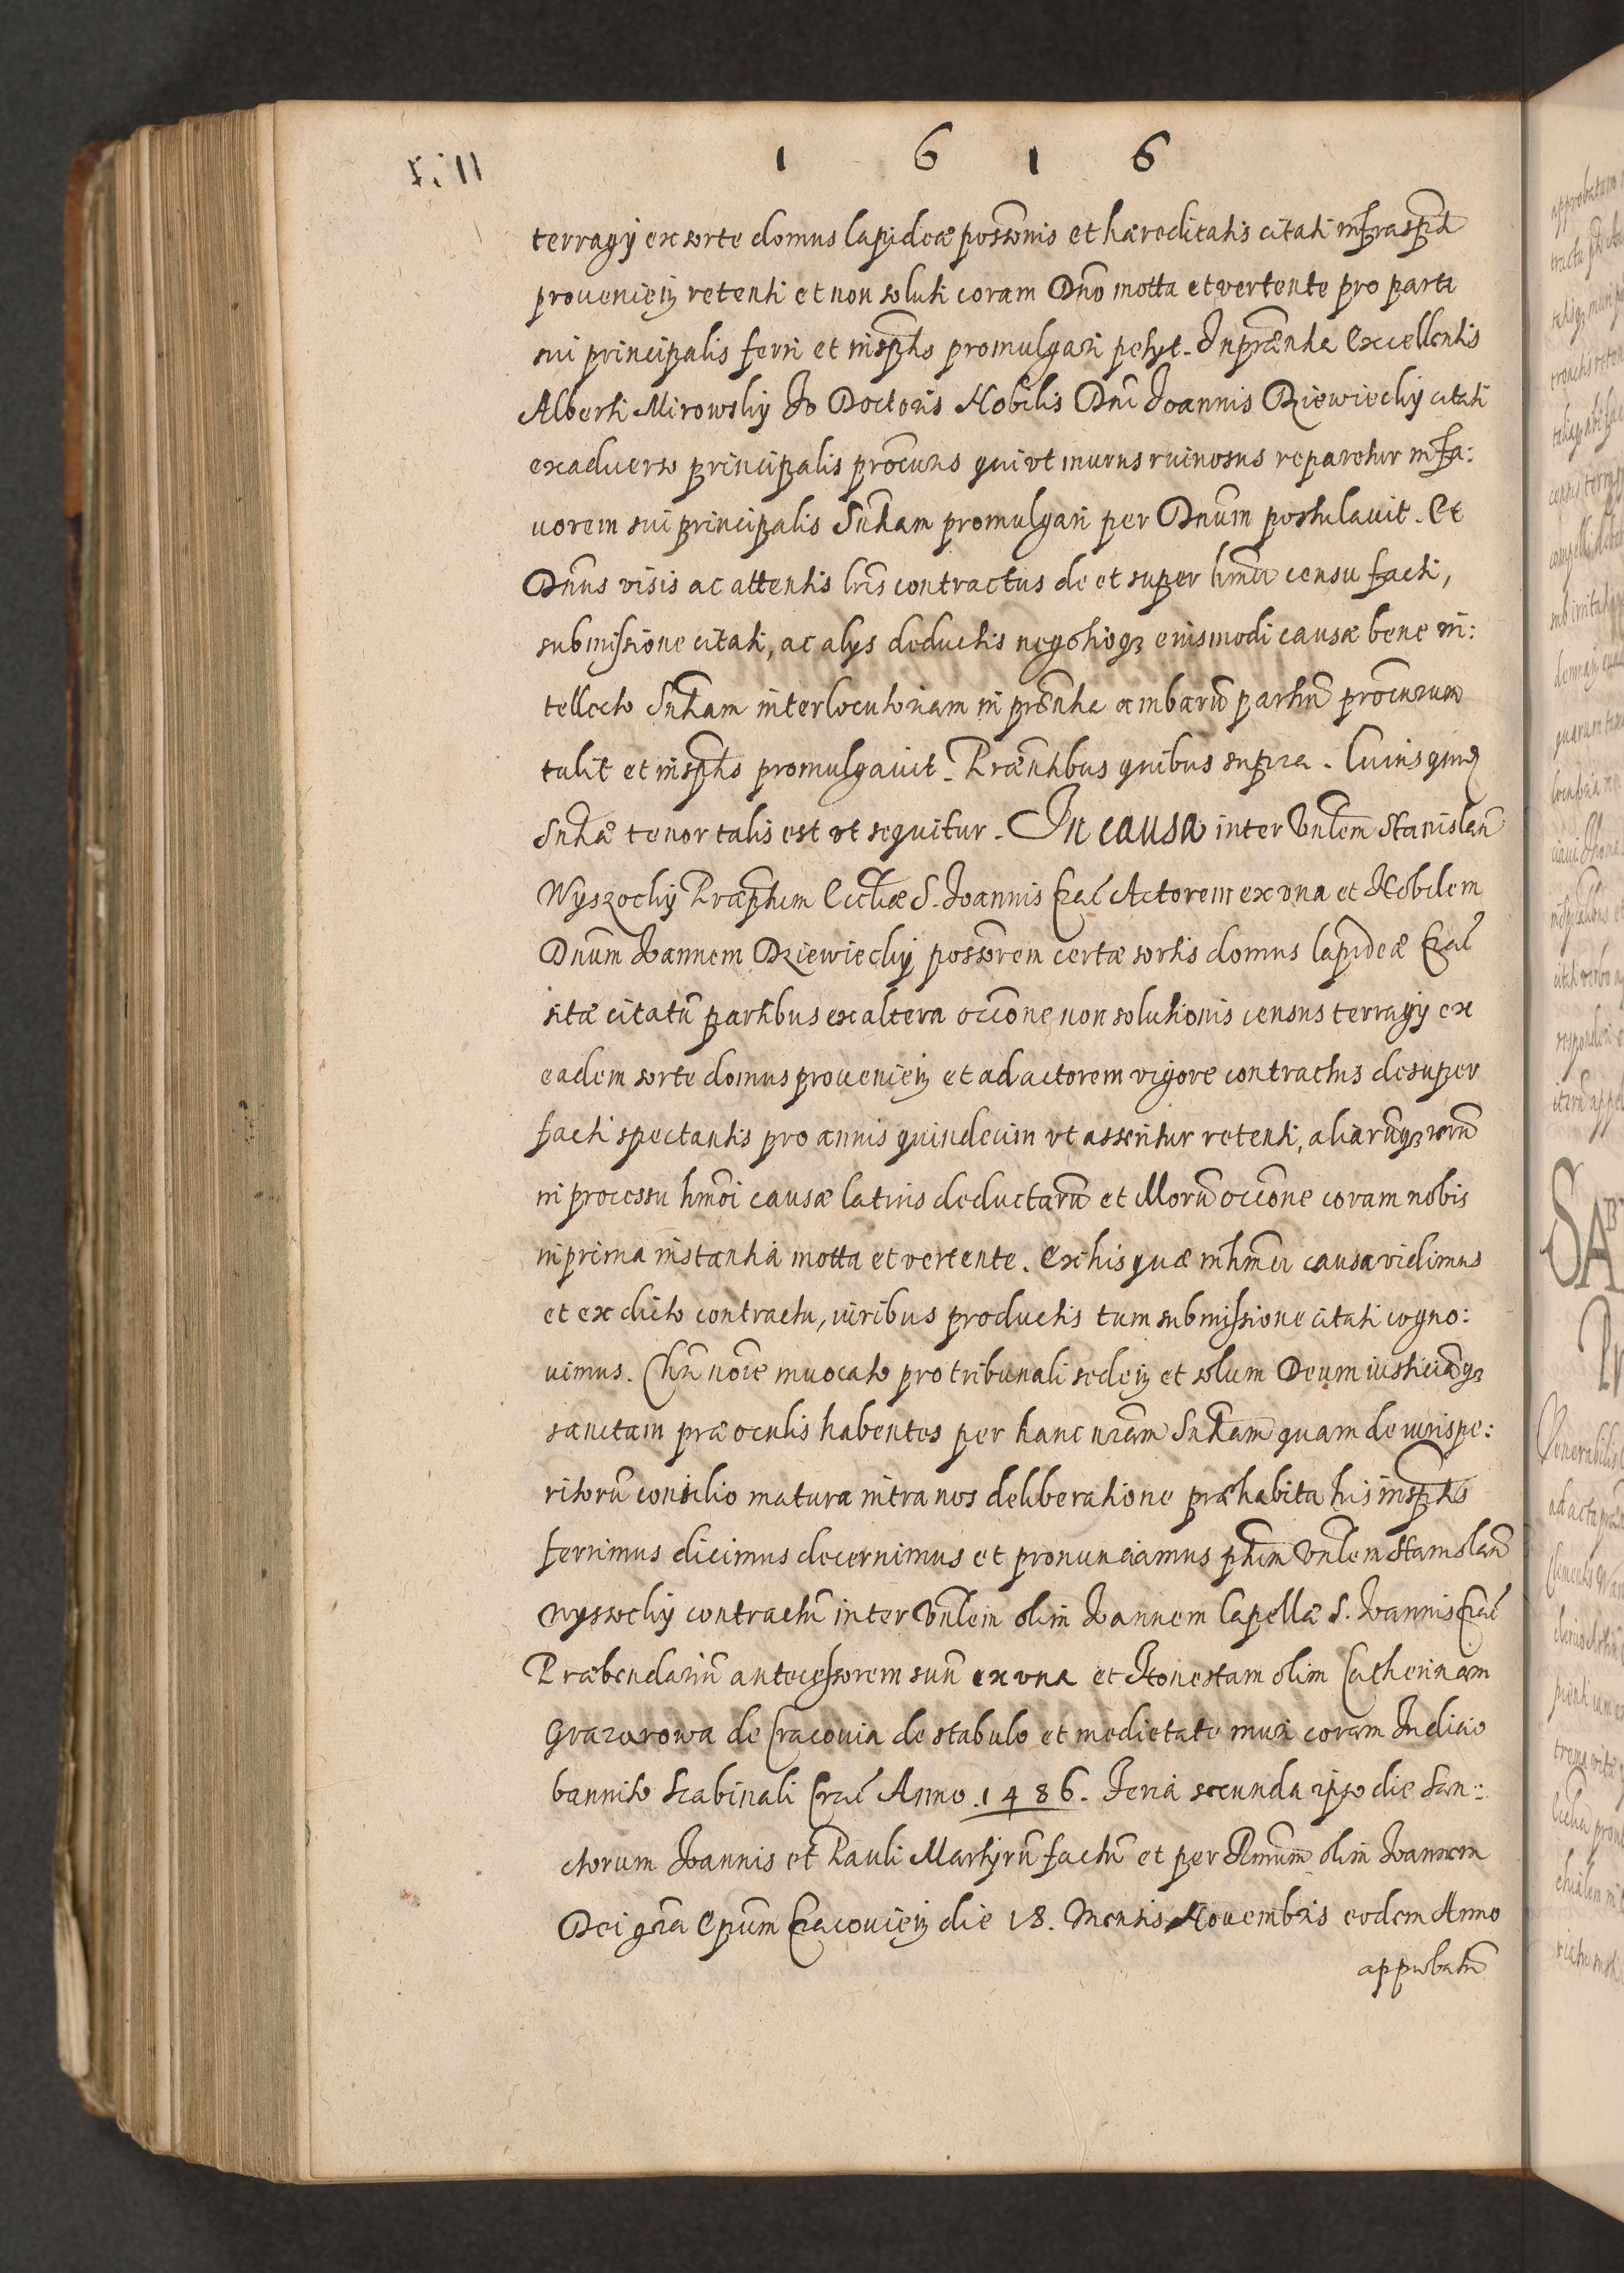 1 6 1 6
terragij ex sorte domus lapideæ possõnis et hæreditatis citati infrascpti
proucnieñ retenti et non soluti coram Dño motta et vertente pro parte
sui principalis ferri et inscptis promulgari petyt. In prñtia Excellentis
Alberti Mirowskij Io Doctoris Nobilis Dñi Ioannis Dziewieckij citati
ex aduerso principalis procuris qui vt murus ruinosus reparetur in fa:
uorem sui principalis Sñtiam promulgari per Dñum postulauit. Et
Dñus visis ac attentis lris contractus de et super hmõi censu facti,
submissione citati, ac alys deductis negotioq3 eiusmodi causæ bene in:
tellecto Sñtiam interlocutoriam in prñtia ambarũ partiũ procurum
tulit et inscptis promulgauit. Præñtibus quibus supra. Cuiusquid
Sñtiæ tenor talis est vt sequitur. In causa inter Vñlem Stanislaũ
Wyszockij Præptum Eccliæ S. Ioannis Crac̃ Actorem ex vna et Nobilem
Dñum Ioannem Dziewieckij possorem certæ sortis domus lapideæ Crac̃
sitæ citatũ partibus ex altera occõne non solutionis census terragij ex
eadem sorte domus prouenieñ et ad actorem vigore contractus desuper
facti spectantis pro annis quindecim vt asseritur retenti, aliarũq3 rerũ
in processu hmõi causæ latius deductarũ et illorũ occõne coram nobis
in prima instantia motta et vertente. Ex his quæ in hmõi causa vidimus
et ex dicto contractu, iuribus productis tum submissione citati cogno:
uimus. Chri noĩe inuocato pro tribunali sedeñ et solum Deum iusticiãq3
sanctam præ oculis habentes per hanc nrãm Sñtiam quam de iurispe:
ritorũ consilio matura intra nos deliberatione præhabita his inscptis
ferrimus dicimus decernimus et pronunciamus pñtim Vñlem Stanislaũ
Wyssockij contractũ inter Vñlem olim Ioannem Capellæ S. Ioannis Crac̃
Præbendariũ antecessorem suũ ex vna et Honestam olim Catherinam
Grazarowa de Cracouia de stabulo et medietate muri coram Iudicio
bannito Scabinali Crac̃ Anno .1486. Feria secunda ipso die San:
ctorum Ioannis et Pauli Martyrũ factũ et per Rmũm olim Ioannem
Dei grã Epum Cracouieñ die 18. Mensis Nouembris eodem Anno
approbatũ